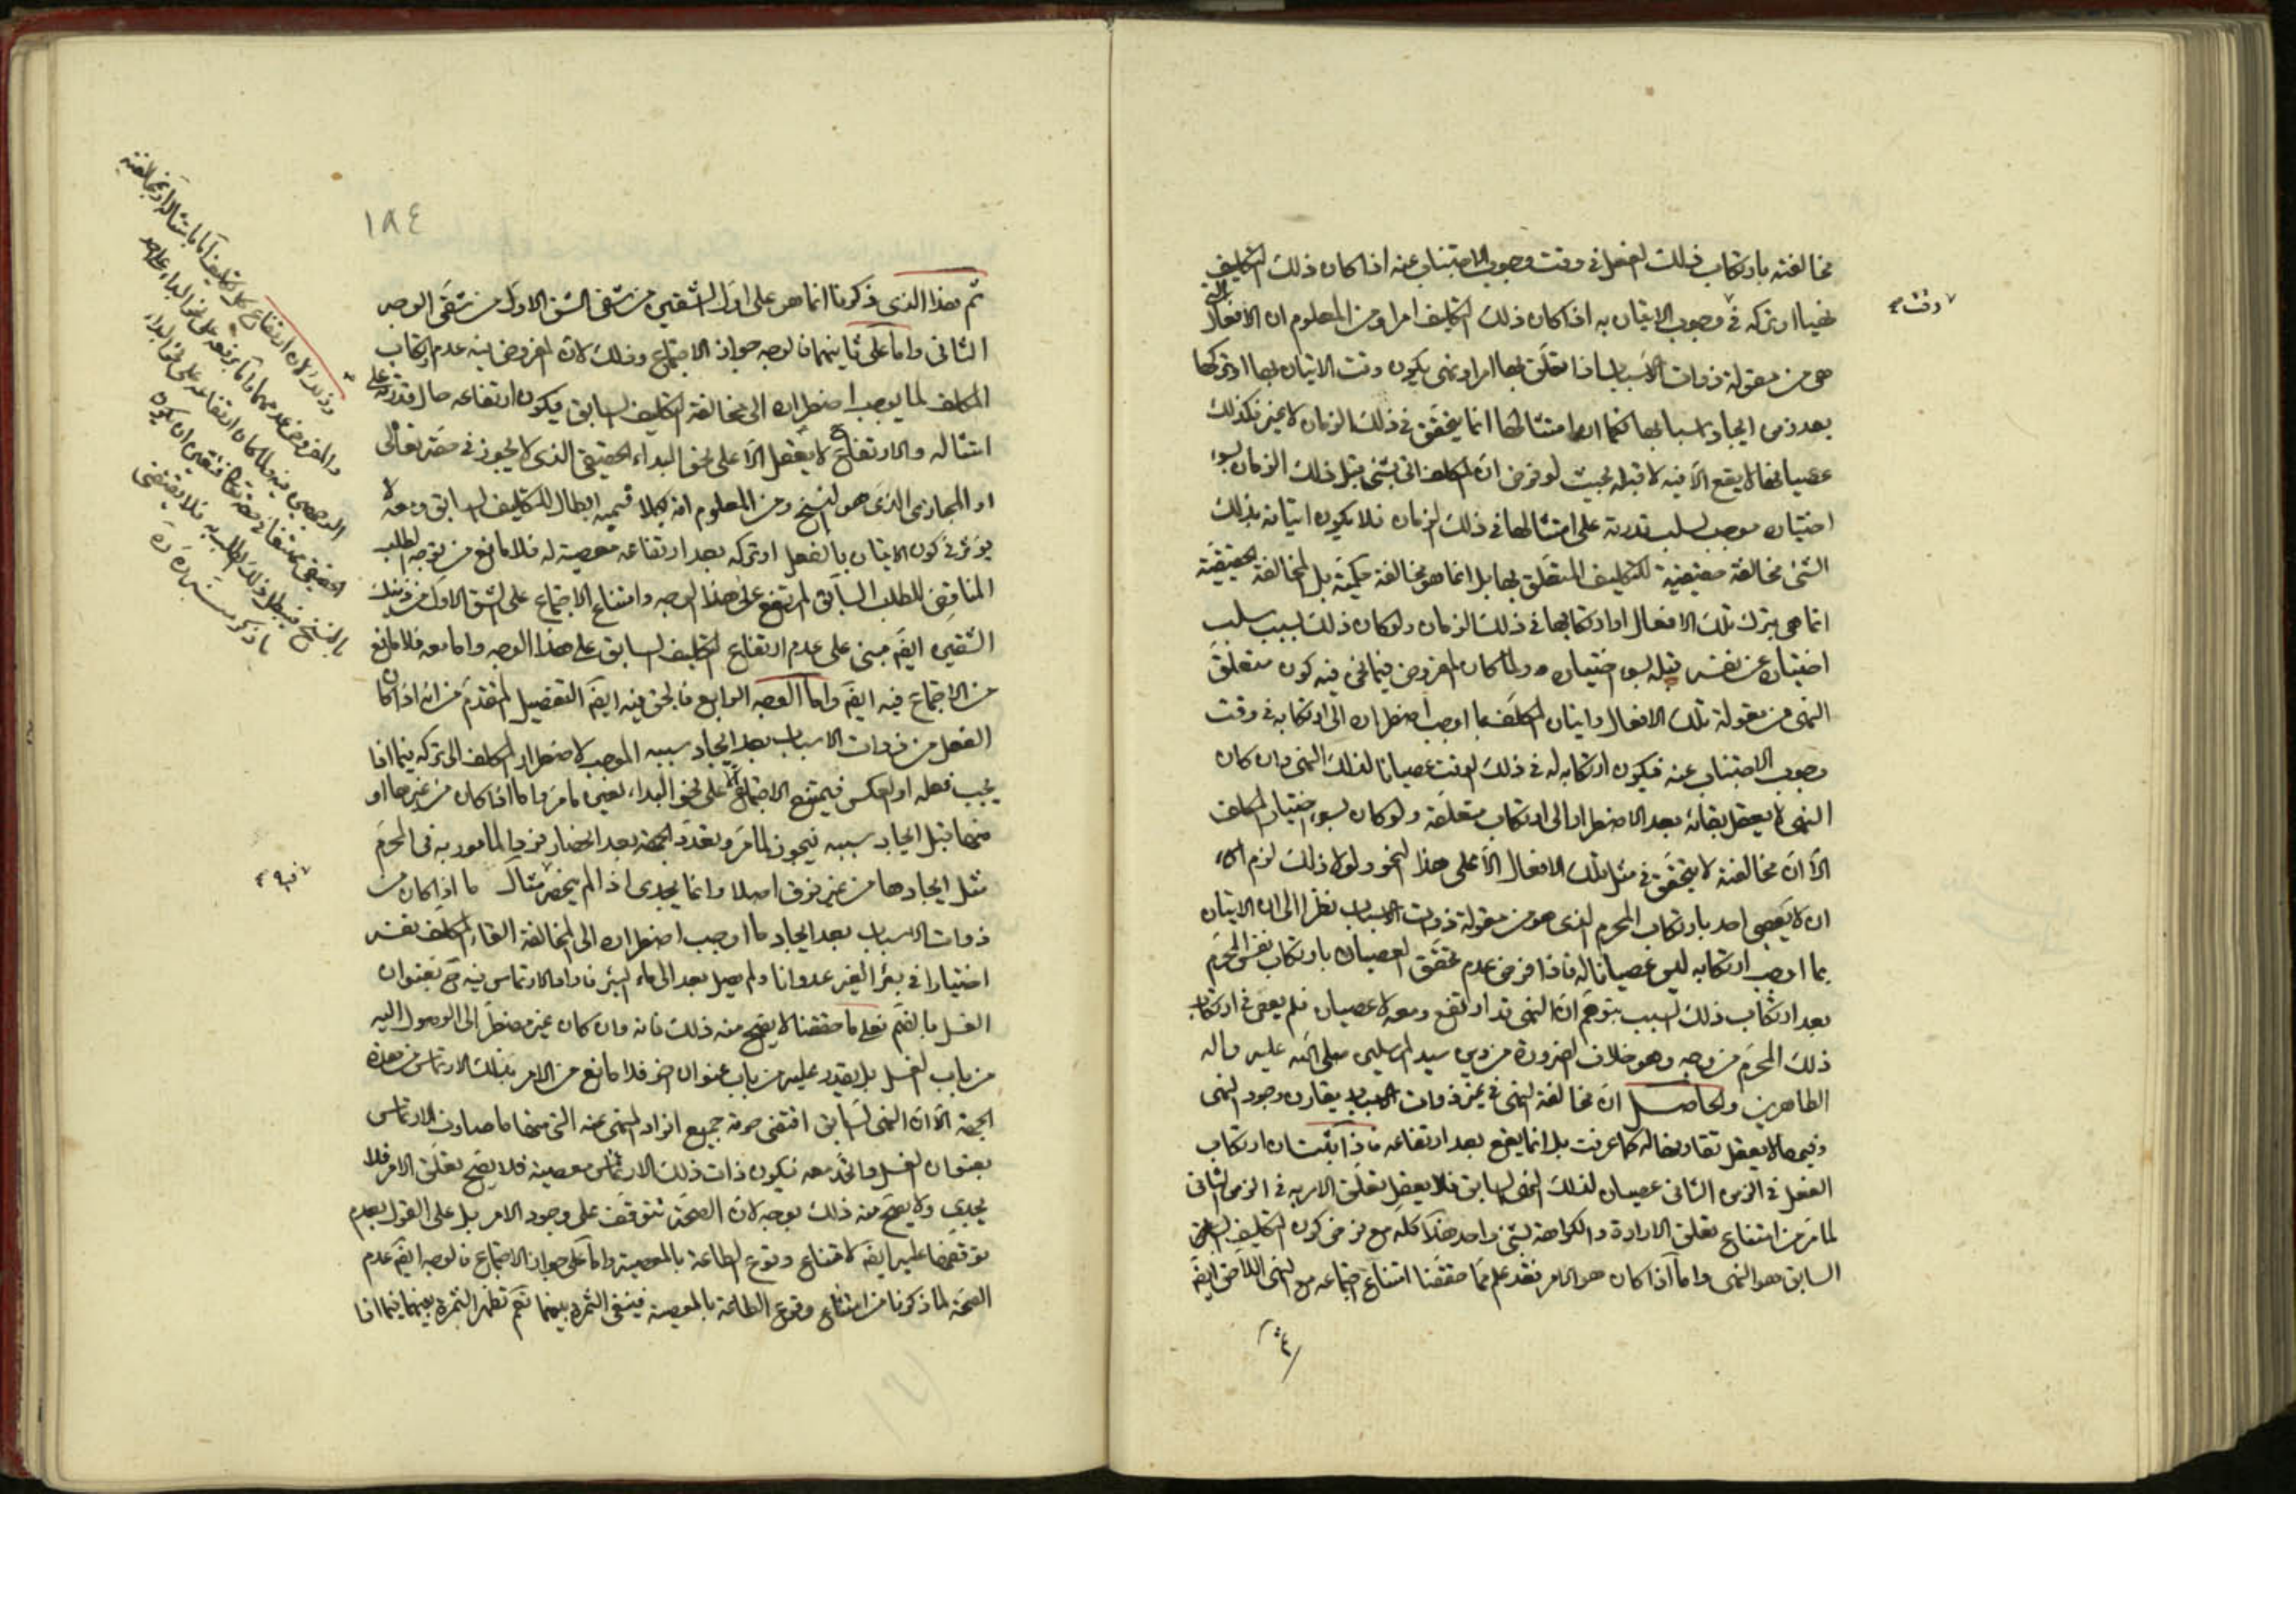 مخالفته بارتكاب ذلك الفعل في وقت وجوب الاجتناب عنه اذا كان ذلك التكليف
نهيا او بتركه في وجوب الاتيان به اذا كان ذلك التكليف امرا ومن المعلوم ان الافعال التي
وقت
هي من مقولة ذوات الاسباب اذا تعلق بها امر او نهي يكون وقت الاتيان بها او تركها
بعد زمن ايجاد اسبابها فكما ان امتثالها انما يتحقق في ذلك الزمان لا غير فكذلك
عصيانها لا يقع الا فيه لا قبله بحيث لو فرض ان المكلف اتى بشيء قبل ذلك الزمان بسوء
اختياره موجب لسلب قدرته على امتثالها في ذلك الزمان فلا يكون اتيانه بذلك
الشيء مخالفة حقيقية لتكليف المتعلق بها بل انما هو مخالفة حكمية بل المخالفة الحقيقية
انما هي بترك تلك الافعال او ارتكابها في ذلك الزمان ولو كان ذلك بسبب سلب
اختياره عن نفسه قبله بسوء اختياره ولما كان المفروض فيما نحن فيه كون متعلق
النهي من مقولة تلك الافعال واتيان المكلف بما اوجب اضطراره الى ارتكابه في وقت
وجوب الاجتناب عنه فيكون ارتكابه له في ذلك الوقت عصيانا لذلك النهي وان كان
النهي لا يعقل بقائه بعد الاضطرار الى ارتكاب متعلقه ولو كان بسوء اختيار المكلف
الا ان مخالفته لا يتحقق في مثل تلك الافعال الا على هذا النحو ولولا ذلك لزم
ان لا يعصى احد بارتكاب المحرم الذي هو من مقولة ذوات الاسباب نظرا الى ان الاتيان
بما اوجب ارتكابه ليس عصيانا له فاذا فرض عدم تحقق العصيان بارتكاب نفس المحرم
بعد ارتكاب ذلك السبب بتوهم ان النهي قد ارتفع ومعه لا عصيان فلم يعص في ارتكاب
ذلك المحرم من وجه وهو خلاف الضرورة من دين سيد المرسلين صلى الله عليه واله
الطاهرين والحاصل ان مخالفة النهي في غير ذوات الاسباب يقارن وجود النهي
وفيها لا يعقل تقارنها له كما عرفت بل انما يقع بعد ارتفاعه فاذا ثبت ان ارتكاب
الفعل في الزمن الثاني عصيان لذلك النهي السابق فلا يعقل تعلق الامر به في الزمن الثاني
لما مر من امتناع تعلق الارادة والكراهة بشيء واحد هذا كله مع فرض كون التكليف
السابق هو النهي واما اذا كان هو الامر فقد علم مما حققنا امتناع اجتماعه مع النهي اللاحق ايضا
١٨٤
ثم هذا الذي ذكرنا انما هو على اول الشقين من شقي الشق الاول من شقي الوجه
الثاني واما على ثانيهما فالوجه جواز الاجتماع وذلك لان المفروض فيه عدم ارتكاب
المكلف لما يوجب اضطراره الى مخالفة التكليف السابق فيكون ارتفاعه حال قدرته على
امتثاله والارتفاع ح لا يعقل الا على نحو البداء الحقيقي الذي لا يجوز في حقه تعالى
او المجازي الذي هو النسخ ومن المعلوم انه بكلا قسميه ابطال للتكليف السابق ومعه لا
يؤثر في كون الاتيان بالفعل او تركه بعد ارتفاعه معصية له فلا مانع من توجه الطلب
المناقض للطلب السابق المرتفع على هذا الوجه وامتناع الاجتماع على الشق الاول من ذينك
الشقين ايضا مبني على عدم ارتفاع التكليف السابق على هذا الوجه واما معه فلا مانع
من الاجتماع فيه ايضا واما الوجه الرابع فالحق فيه ايضا التفصيل المتقدم من انه اذا كان
الفعل من ذوات الاسباب بعد ايجاد سببه الموجب لاضطرار المكلف الى تركه فيما اذا
يجب فعله او العكس فيمتنع الاجتماع الا على نحو البداء بعين ما مر واما اذا كان من غيرها او
منها قبل ايجاد سببه فيجوز لما مر وتعدد الجهة بعد انحصار فرد المأمور به في المحرم
مثل ايجادها من غير فرق اصلا وانما يجدي اذا لم ينحصر مثال ما اذا كان من
فيه
ذوات الاسباب بعد ايجاد ما اوجب اضطراره الى المخالفة القاء المكلف نفسه
اختيارا في بئر الغير عدوانا ولم يصل بعد الى ماء البئر فاراد الارتماس فيه ح بعنوان
الغسل بالضم فعلى ما حققنا لا يصح منه ذلك فانه وان كان غير مضطر الى الوصول اليه
من باب الغسل بل يقدر عليه من باب عنوان اخر فلا مانع من الامر بذلك الارتماس من هذه
الجهة الا ان النهي السابق اقتضى حرمة جميع افراد المنهي عنه التي منها ما صادف الارتماس
بعنوان الغسل واتحد معه فيكون ذات ذلك الارتماس معصية فلا يصح تعلق الامر فلا
يجدي ولا يصح منه ذلك بوجه لان الصحة تتوقف على وجود الامر بل على القول بعدم
توقفها عليه ايضا لامتناع وقوع الطاعة بالمعصية واما على جواز الاجتماع فالوجه ايضا عدم
الصحة لما ذكرنا من امتناع وقوع الطاعة بالمعصية فينفى الثمرة بينهما نعم تظهر الثمرة بينهما فيما اذا
وذلك لان ارتفاع كل تكليف اما بامتثاله او بمخالفته
والمفروض عدمهما واما برفعه على نحو البداء على احد
الوجهين فيه ولما كان ارتفاعه على نحو البداء
الحقيقي ممتنعا في حقه تعالى فتعين ان يكون
بالنسخ فيبطل ذلك الطلب به فلا يقتضي